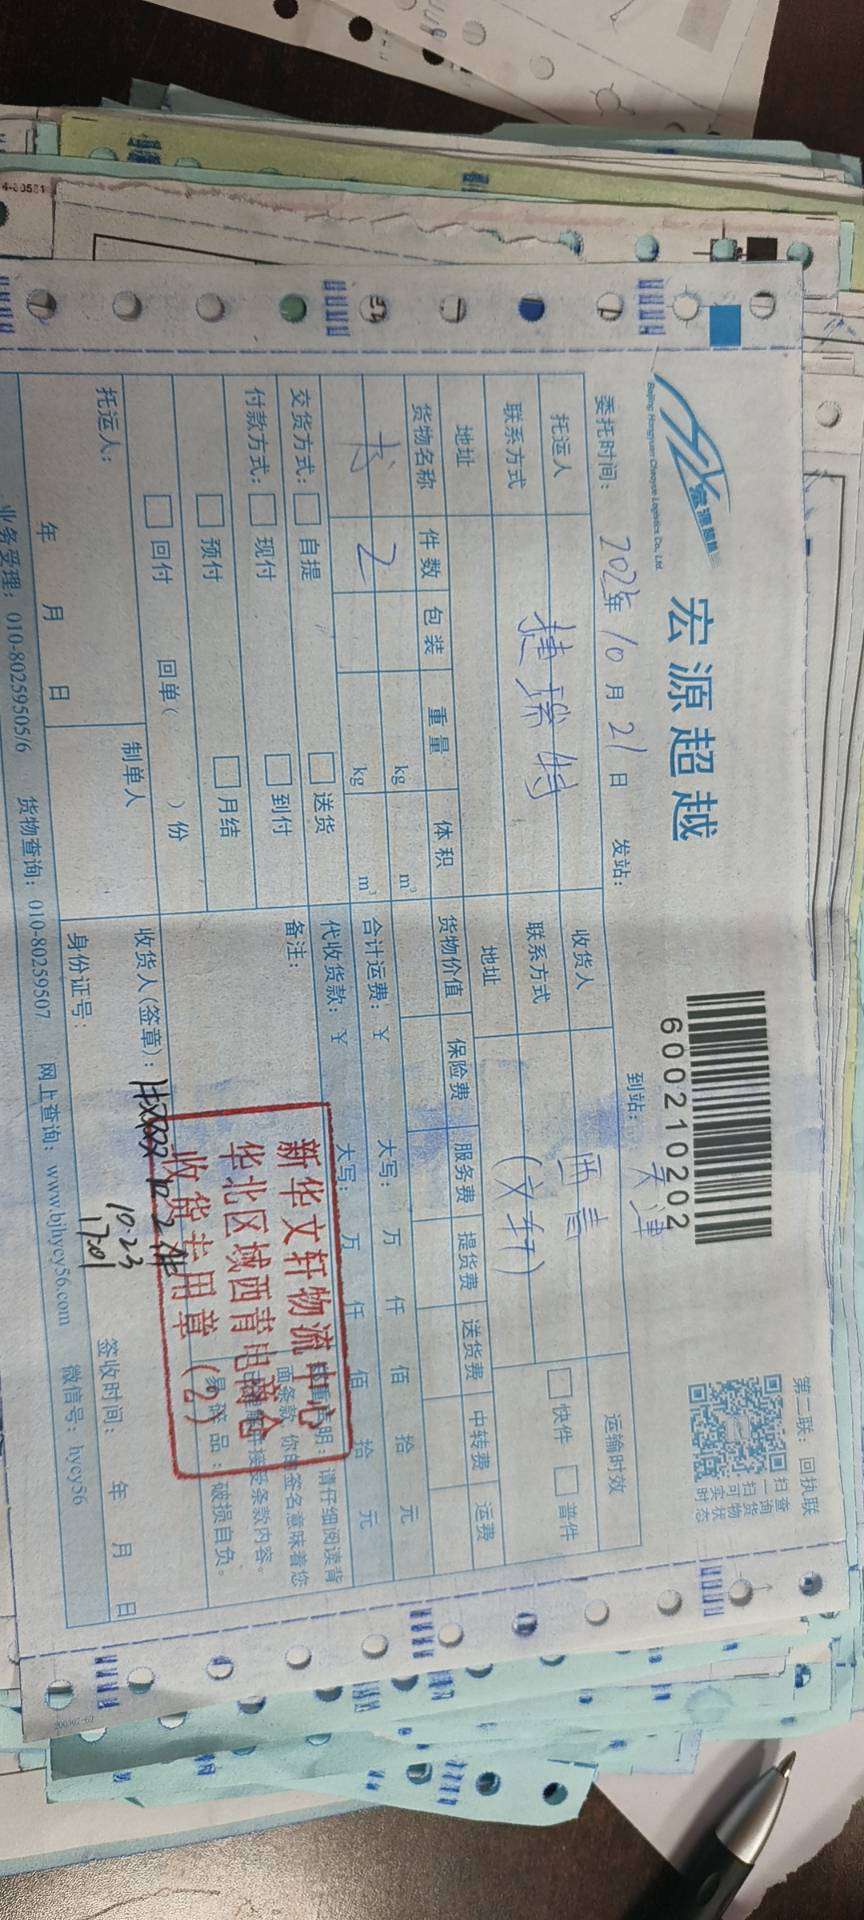 宏源超越
Beijing Hongyuan Chaoyue Logistics Co., Ltd.
宏源超越
6000210202
第二联：回执联
扫一扫
查询货物
可实时状态
委托时间：2025年10月21日
发站：
到站：天津
托运人
捷瑞特
收货人
西青
运输时效
联系方式
联系方式
(文轩)
快件
普件
地址
地址
货物名称 件数 包装 重量 体积 货物价值 保险费 服务费 提货费 送货费 中转费 运费
书 2 kg m³
kg m³
合计运费：¥ 大写： 万 仟 佰 拾 元
代收货款：¥ 大写： 万 仟 佰 拾 元
交货方式： 自提 送货
备注：
付款方式： 现付 到付
预付 月结
回付 回单( )份
明：请仔细阅读背
面条款，你的签名意味着您
接受条款内容。
易碎品：破损自负。
新华文轩物流中心
华北区域西青电商仓
收货专用章(2)
托运人：
年 月 日
制单人
收货人(签章)：
身份证号：
10.23
17:01
签收时间： 年 月 日
业务受理：010-80259505/6 货物查询：010-80259507 网上查询：www.bjhycy56.com 微信号：hycy56